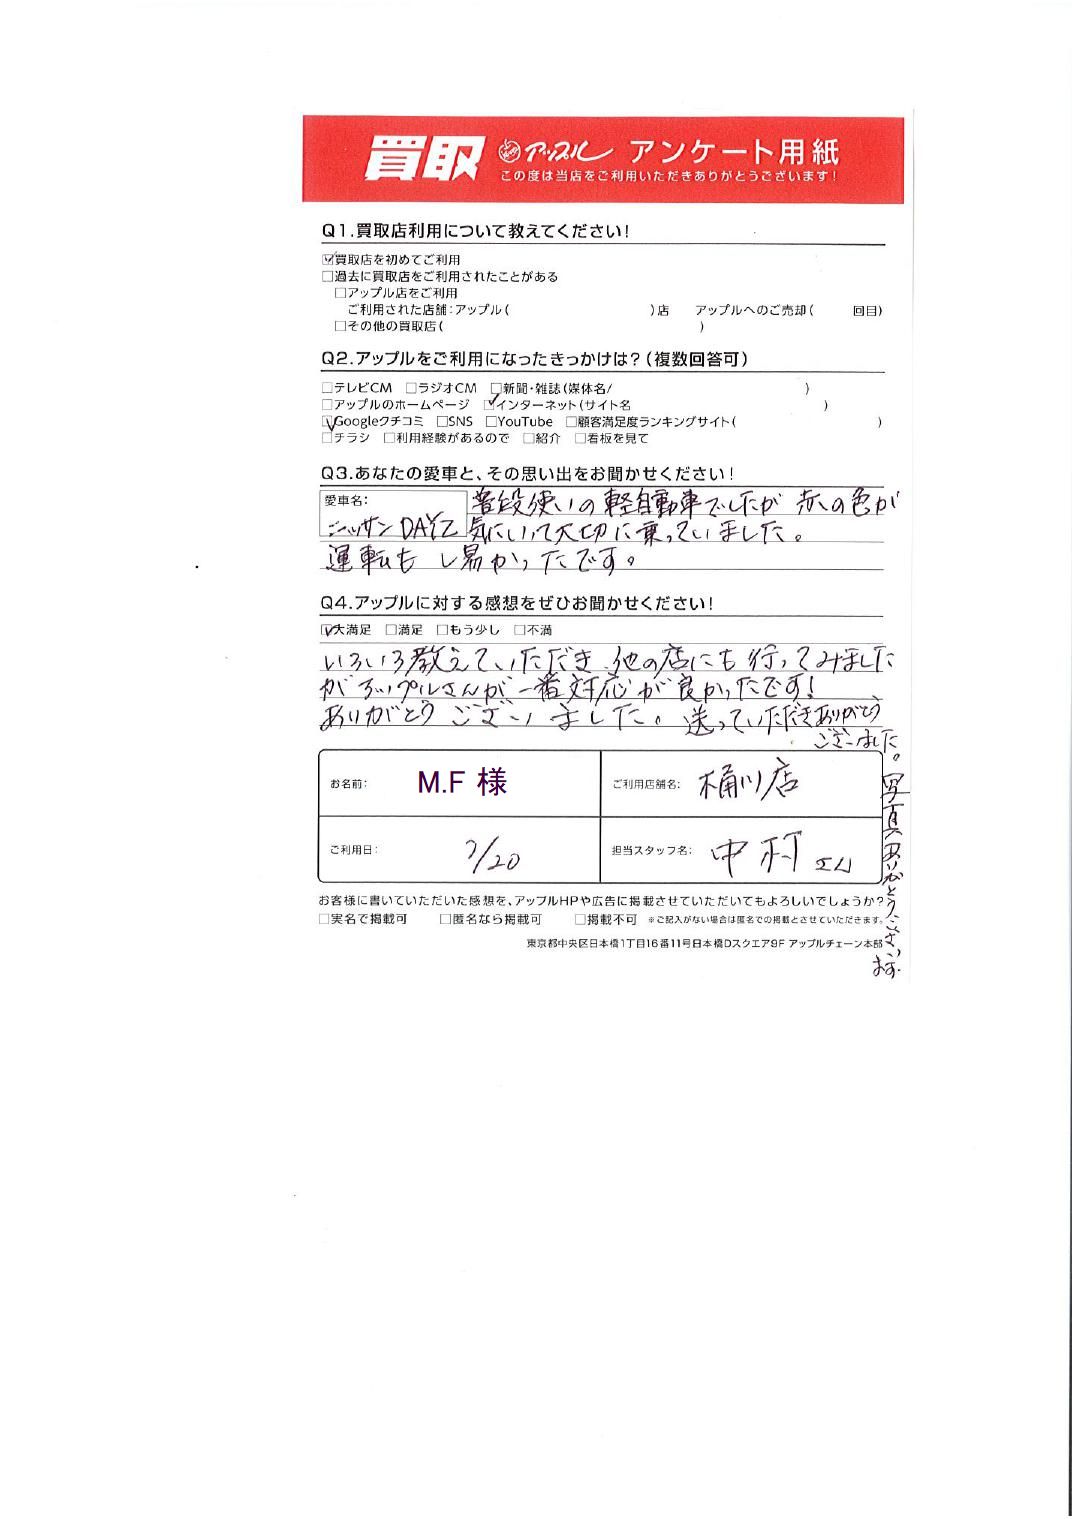 買取 アップル アンケート用紙
この度は当店をご利用いただきありがとうございます!
Q1.買取店利用について教えてください!
☑買取店を初めてご利用
□過去に買取店をご利用されたことがある
□アップル店をご利用
ご利用された店舗:アップル( )店 アップルへのご売却( 回目)
□その他の買取店( )
Q2.アップルをご利用になったきっかけは?(複数回答可)
□テレビCM □ラジオCM □新聞・雑誌(媒体名/ )
□アップルのホームページ ☑インターネット(サイト名 )
☑Googleクチコミ □SNS □YouTube □顧客満足度ランキングサイト( )
□チラシ □利用経験があるので □紹介 □看板を見て
Q3.あなたの愛車と、その思い出をお聞かせください!
愛車名: 普段使いの軽自動車でしたが 赤の色が
ニッサン DAYZ 気にいって大切に乗っていました。
運転も し易かったです。
Q4.アップルに対する感想をぜひお聞かせください!
☑大満足 □満足 □もう少し □不満
いろいろ教えていただき、他の店にも行ってみました
がアップルさんが一番対応が良かったです!
ありがとうございました。送っていただきありがとう
ございました。
写真ありがとうござい
ます。
お名前: M.F 様 ご利用店舗名: 桶川店
ご利用日: 7/20 担当スタッフ名: 中村さん
お客様に書いていただいた感想を、アップルHPや広告に掲載させていただいてもよろしいでしょうか?
□実名で掲載可 □匿名なら掲載可 □掲載不可 ※ご記入がない場合は匿名での掲載とさせていただきます。
東京都中央区日本橋1丁目16番11号日本橋Dスクエア9F アップルチェーン本部